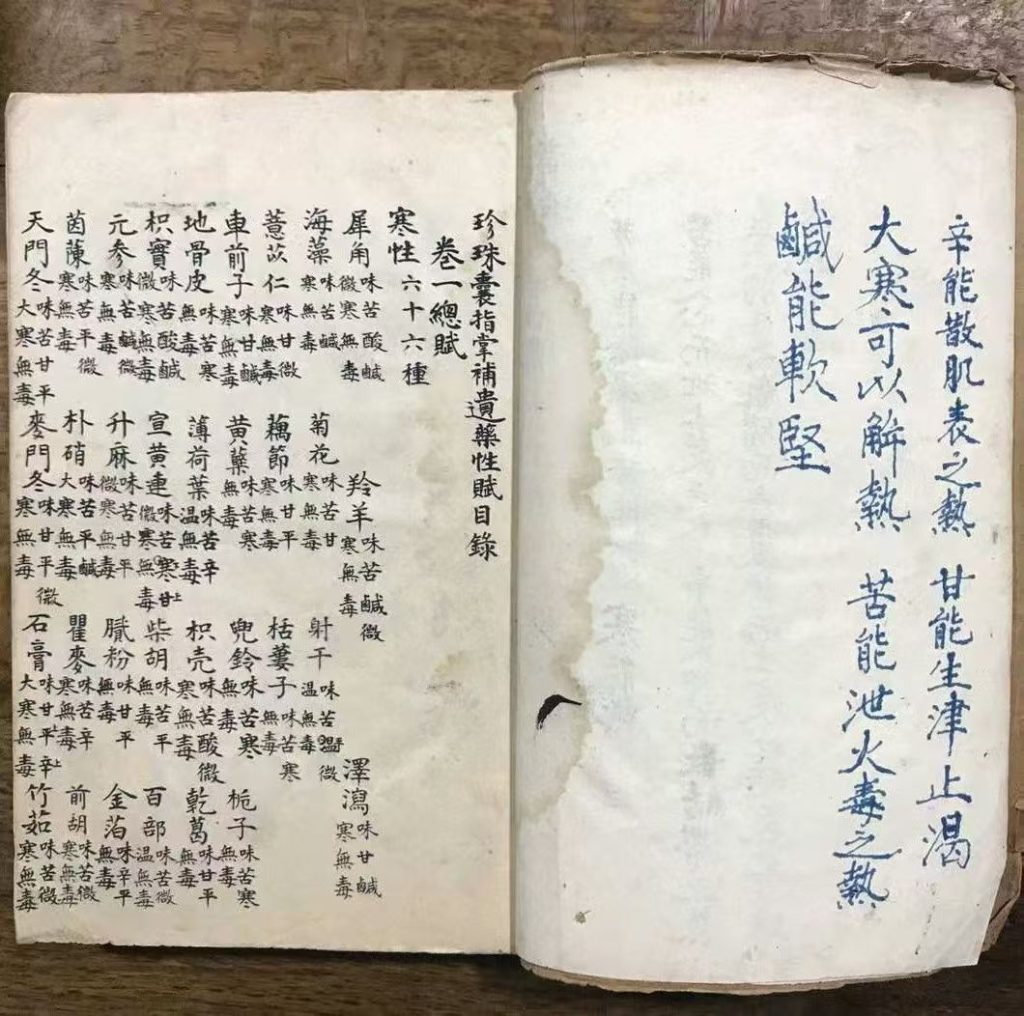 辛能散肌表之熱 甘能生津止渴
大寒可以解熱 苦能泄火毒之熱
鹹能軟堅
珍珠囊指掌補遺藥性賦目錄
卷一總賦
寒性六十六種
犀角 味苦酸鹹微寒無毒 羚羊 味苦鹹微寒無毒 澤瀉 味甘鹹寒無毒
海藻 味苦鹹寒無毒 菊花 味苦甘寒無毒 射干 味苦微溫無毒
薏苡仁 味甘微寒無毒 藕節 味甘平寒無毒 栝蔞子 味苦寒無毒
車前子 味甘鹹寒無毒 黃蘗 味苦寒無毒 兜鈴 味苦寒無毒 梔子 味苦寒無毒
地骨皮 味苦寒無毒 薄荷葉 味苦辛温無毒 枳壳 味苦酸微寒無毒 乾葛 味甘平無毒
枳實 味苦酸鹹微寒無毒 宣黃連 味苦寒甘微寒無毒 柴胡 味苦平無毒 百部 味苦微温無毒
元參 味苦鹹微寒無毒 升麻 味苦甘平微寒無毒 膩粉 味甘平無毒 金箔 味辛平無毒
茵蔯 味苦平微寒無毒 朴硝 味苦平鹹大寒無毒 瞿麥 味苦辛寒無毒 前胡 味苦微寒無毒
天門冬 味苦甘平大寒無毒 麥門冬 味甘平微寒無毒 石膏 味甘平辛大寒無毒 竹茹 味苦微寒無毒